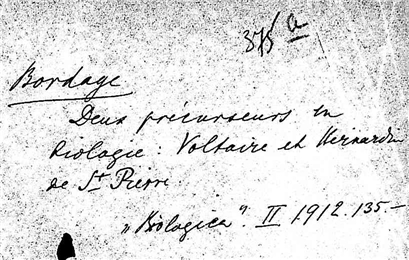 375 a
Bordage
Deux précurseurs en
biologie: Voltaire et Bernardin
de St Pierre.
„Biologica". II 1912. 135.—